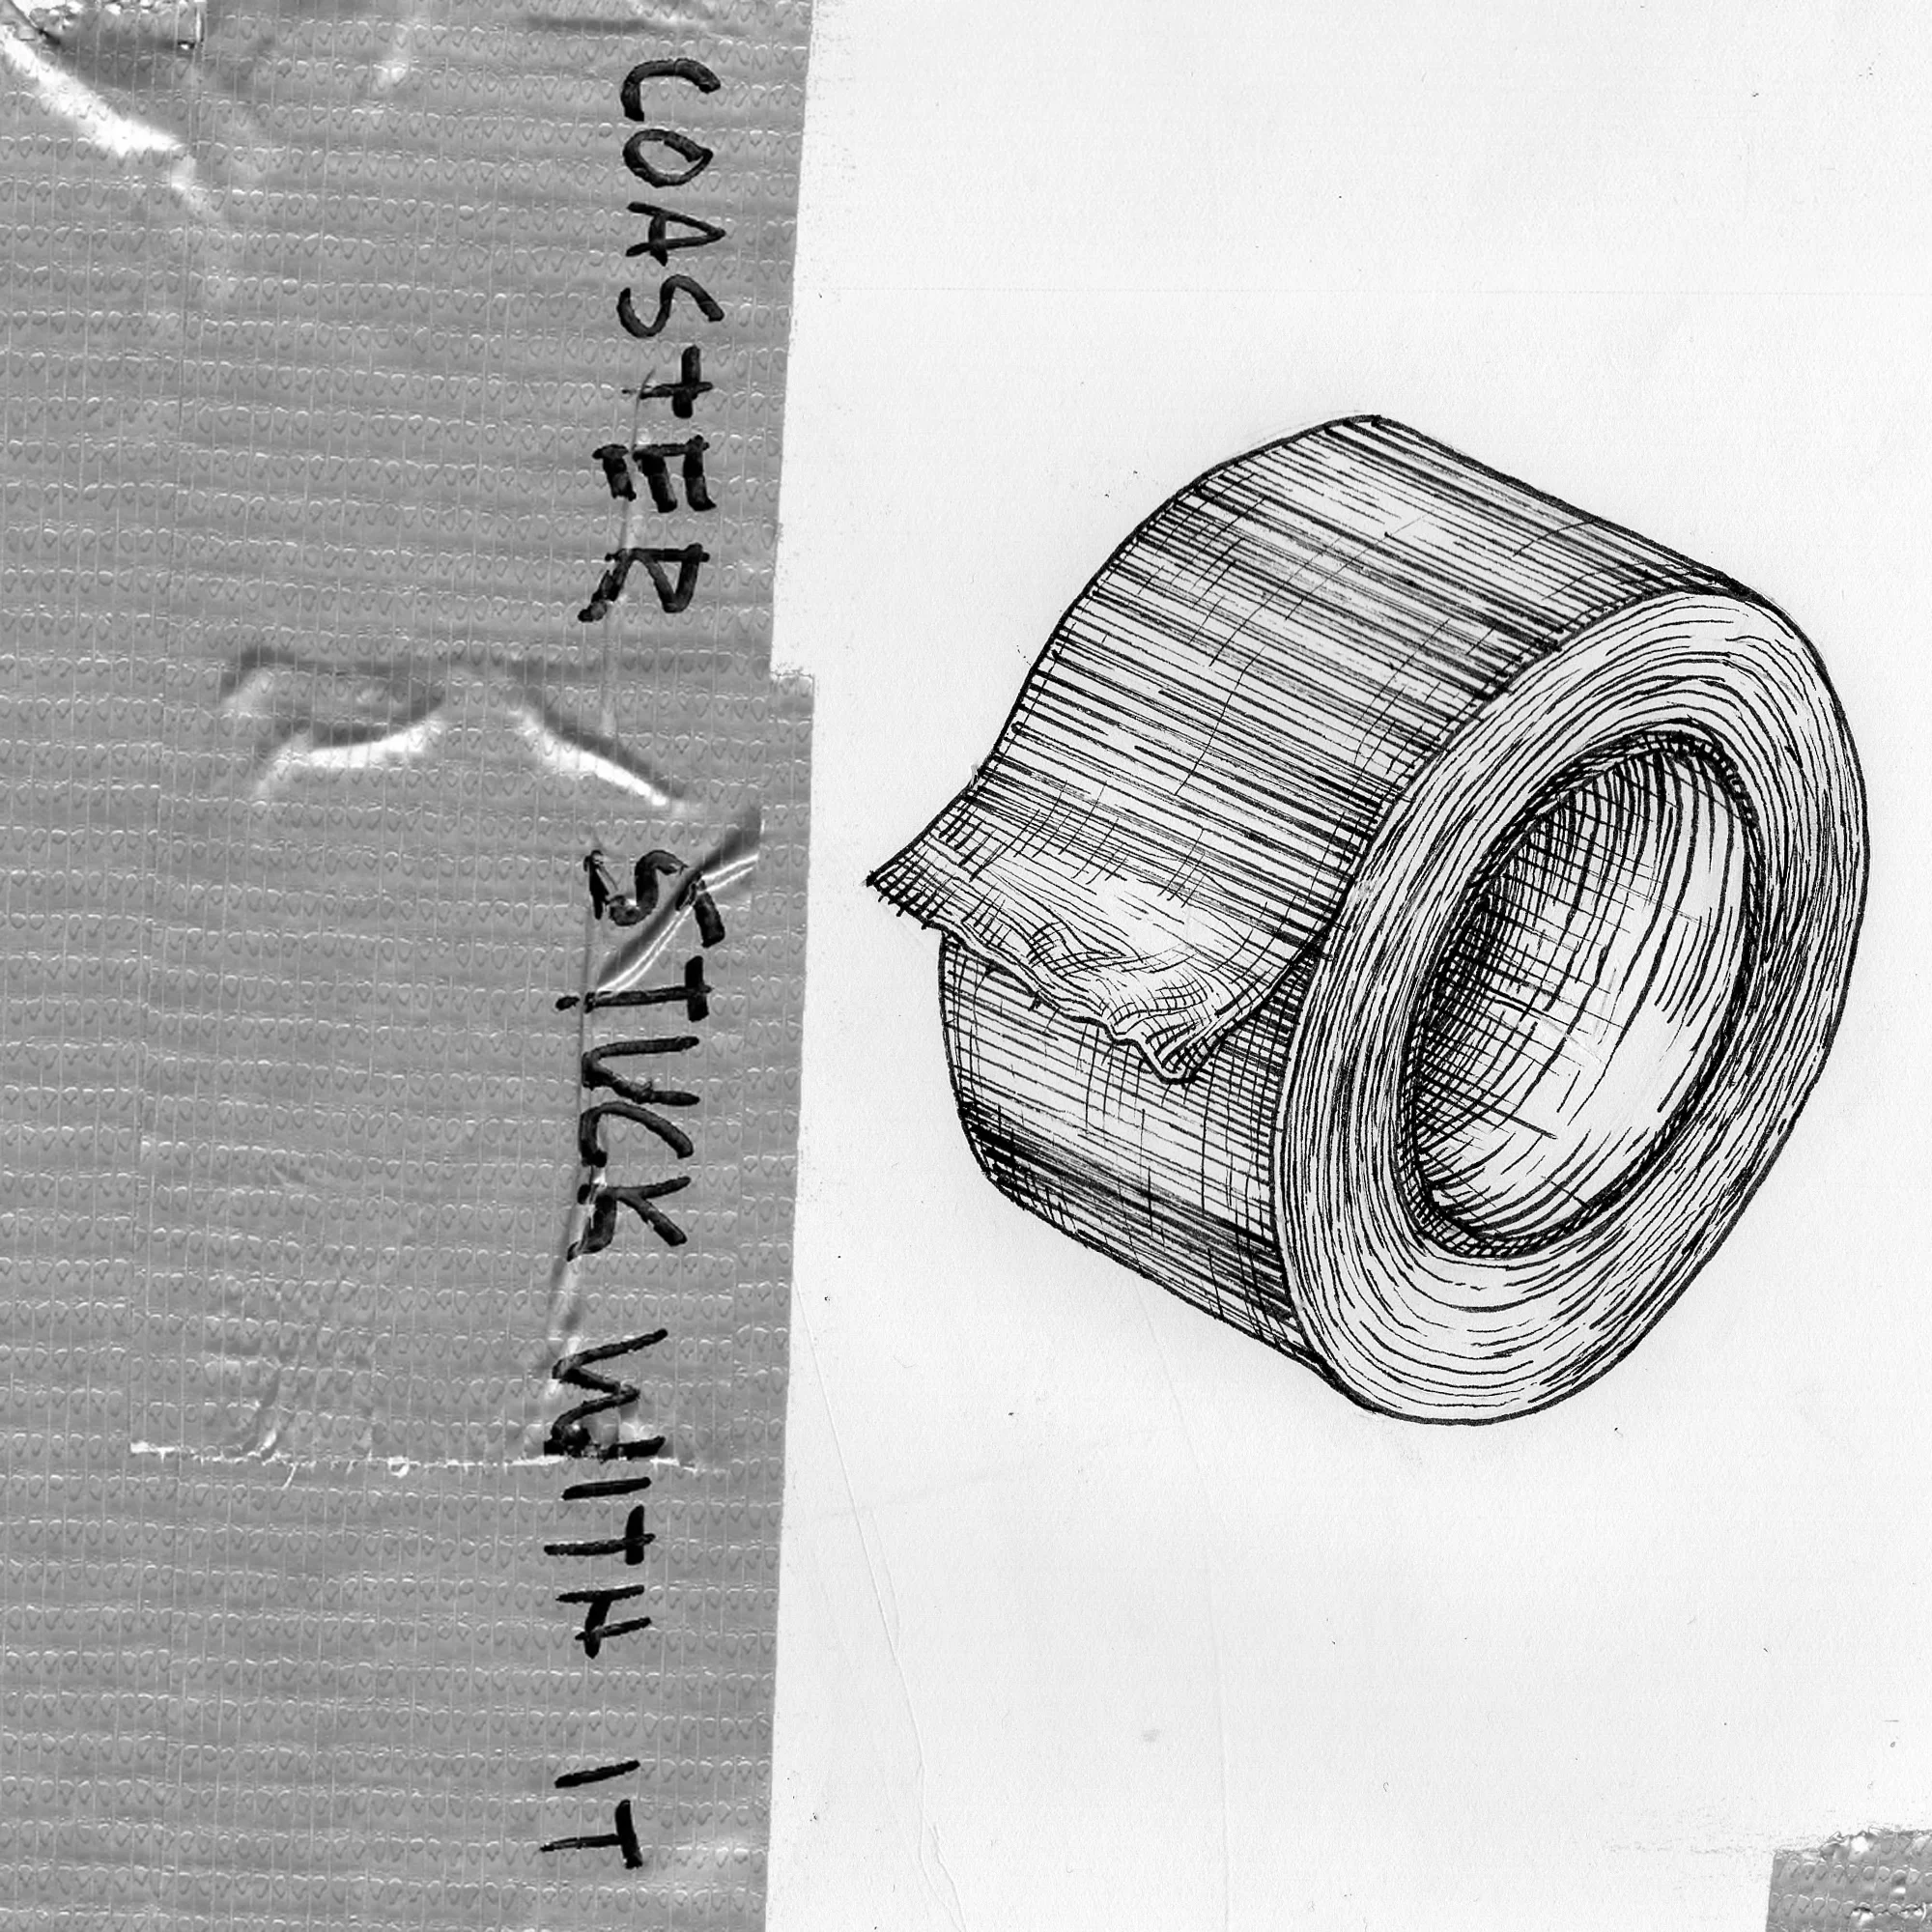 COASTER STUCK WITH IT